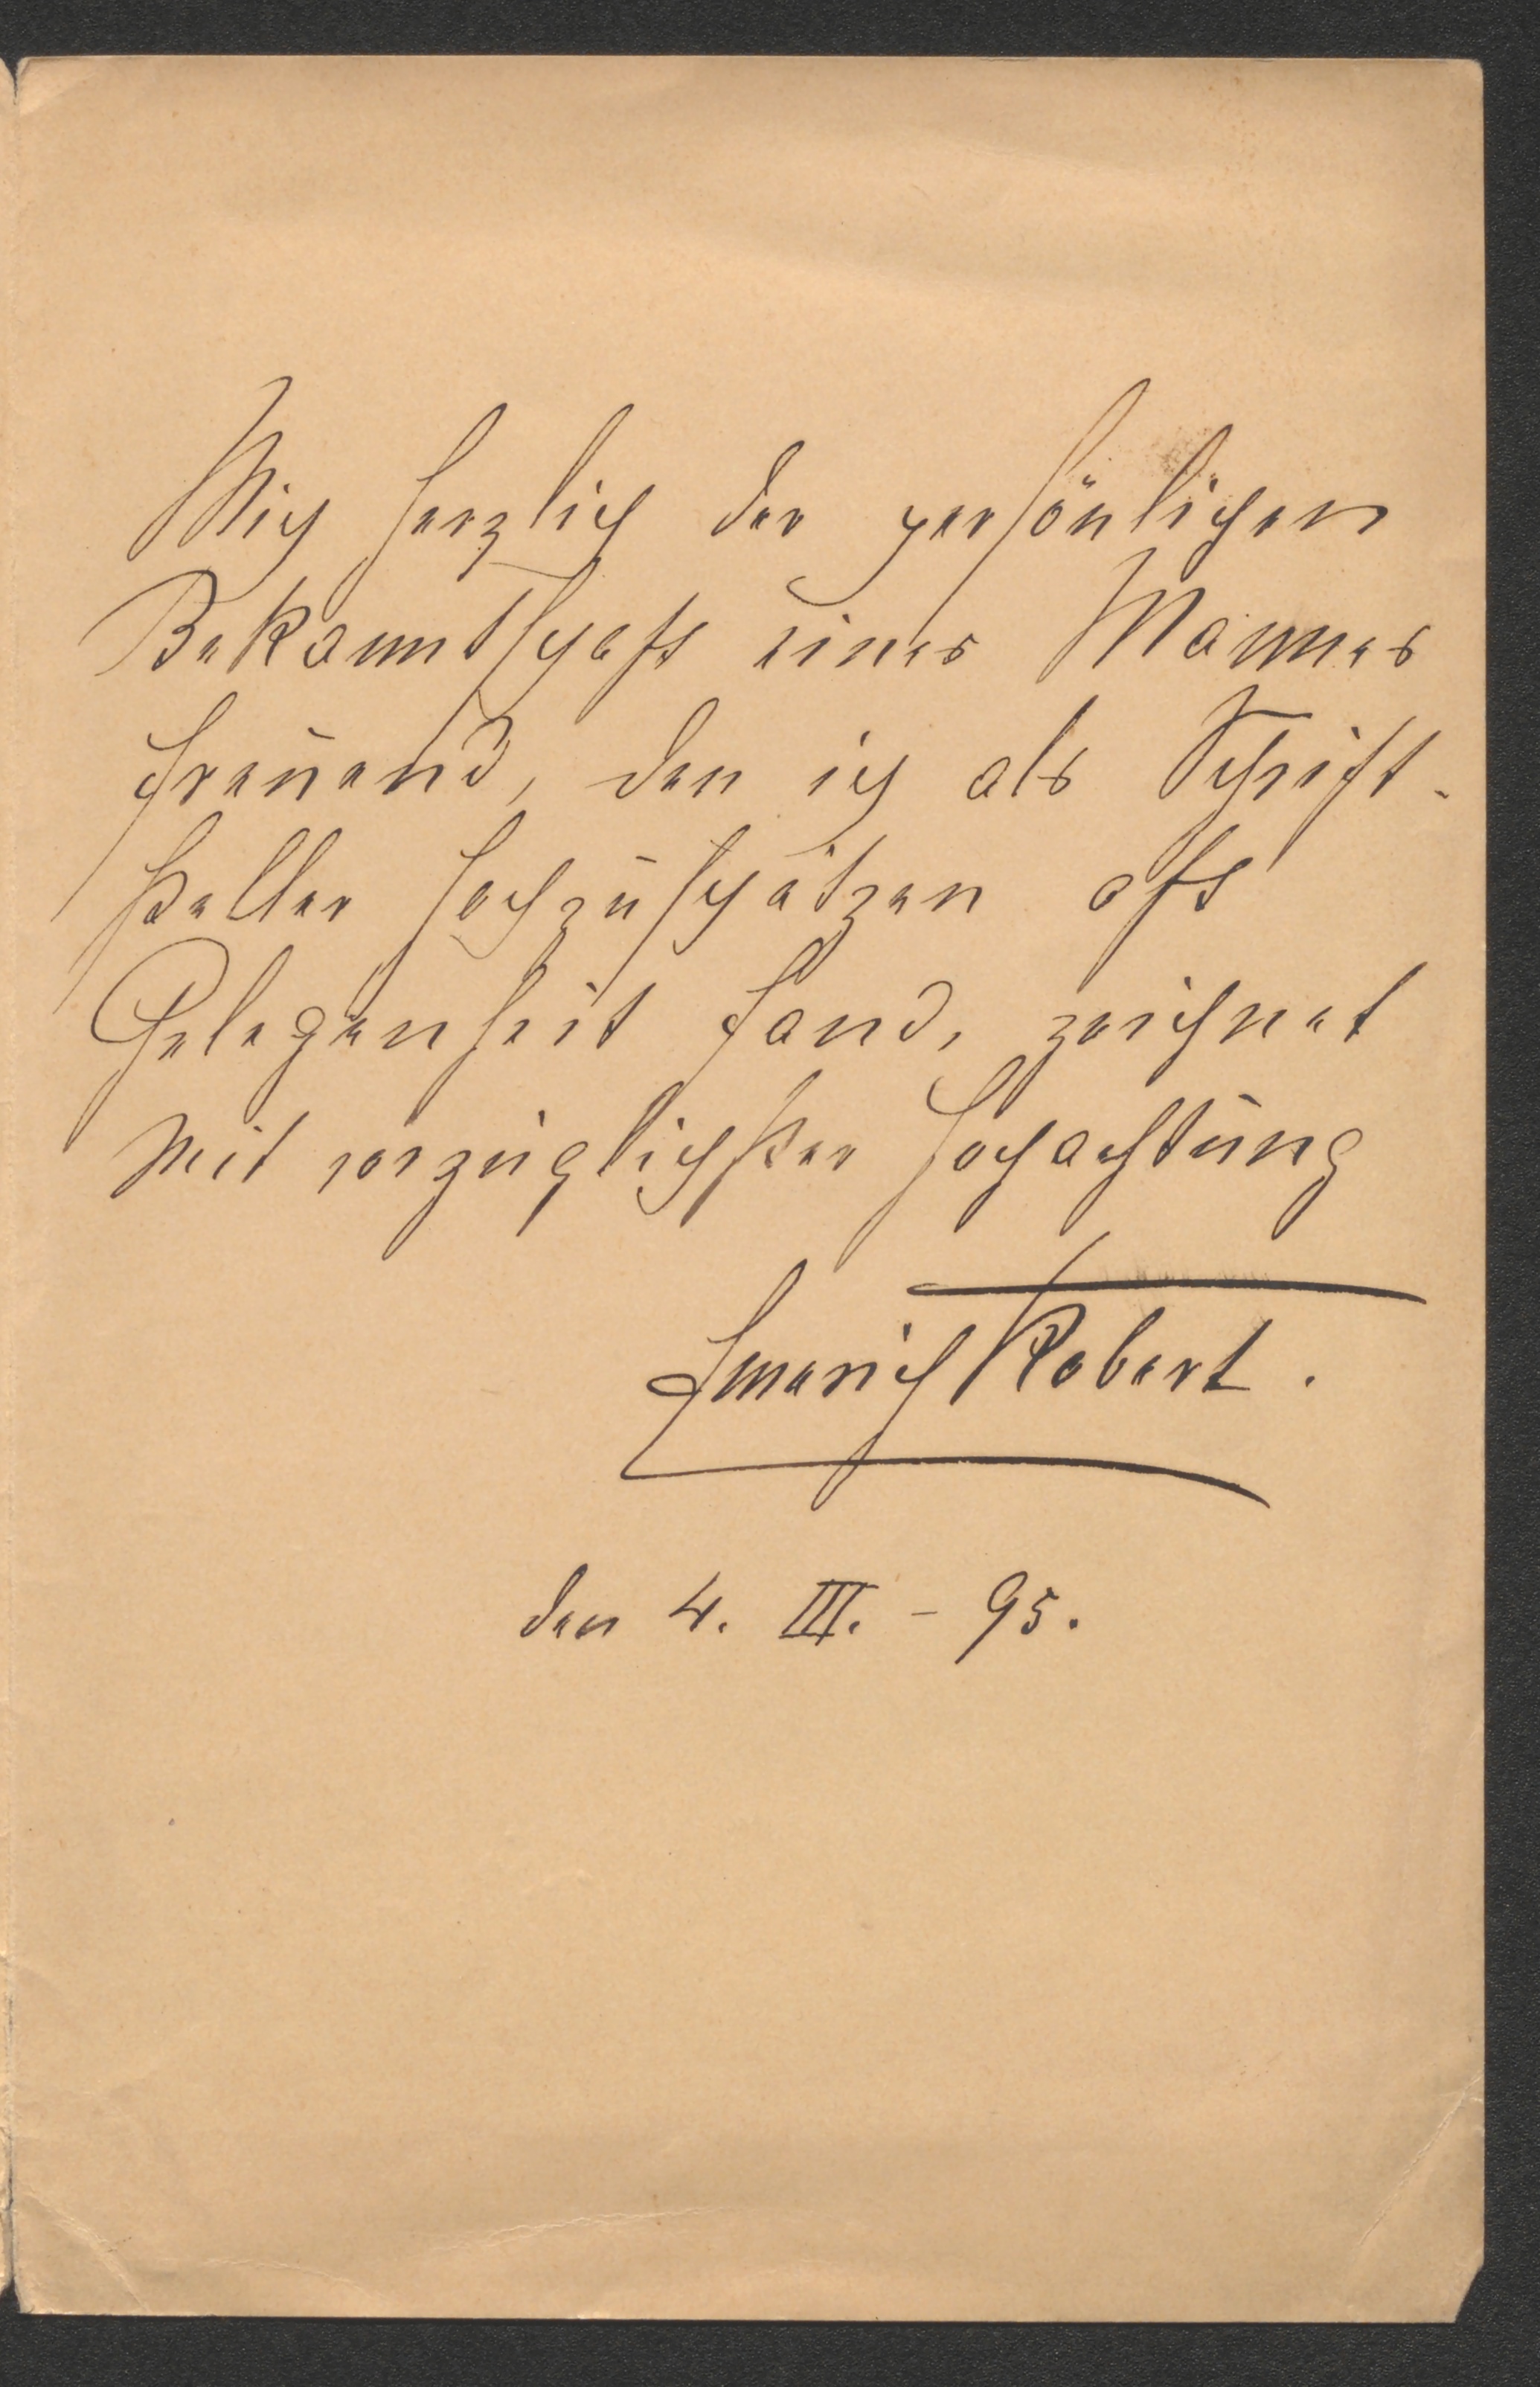 Mich herzlich der persönlichen
Bekanntschaft eines Mannes
freuend, den ich als Schrift-
steller hochzuschätzen oft
Gelegenheit fand, zeichnet
Mit vorzüglichster Hochachtung
Emerich Robert.
den 4. III. - 95.